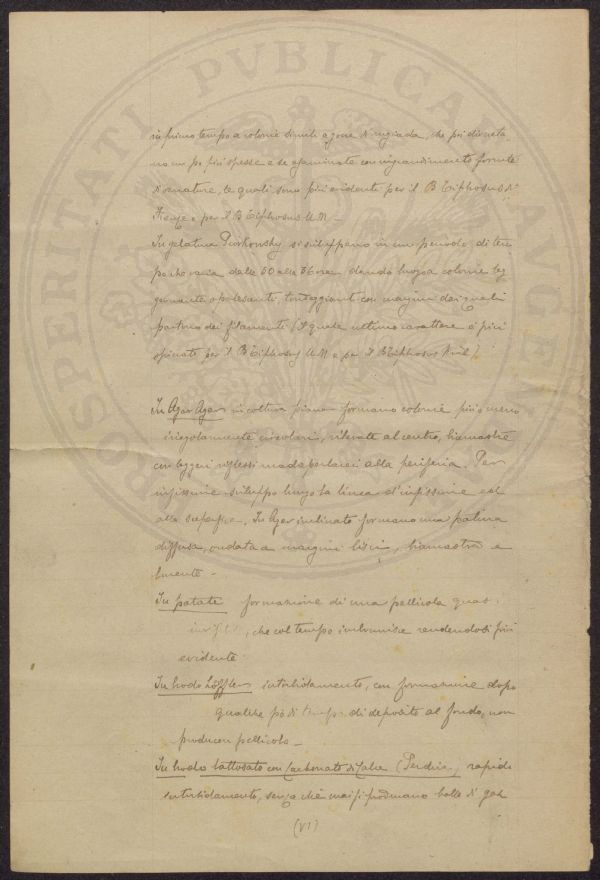 in primo tempo a colonie simili a gocce di rugiada, che poi diventa-
no un po più spesse e se esaminate con ingrandimento fornite
di venature, le quali sono più evidenti per il B Tiphosus di
Firenze e per il B Tiphosus UM -
In gelatina Piorkowsky si sviluppano in un periodo di tem
po che varia dalle 30 alle 36 ore dando luogo a colonie leg
germente opalescenti, tondeggianti con margini dai quali
partono dei filamenti (il quale ultimo carattere è più
spiccato per il B Tiphosus UM e per il B Tiphosus
In Agar Agar in coltura piana formano colonie più o meno
irregolarmente circolari, rilevate al centro, biancastre
con leggeri riflessi madreperlacei alla periferia. Per
infissione sviluppo lungo la linea d'infissione ed
alla superficie. In Agar inclinato formano una patina
diffusa, ondata a margini lisci, biancastra e
lucente -
In patate formazione di una pellicola quasi
invisibile, che col tempo imbrunisce rendendosi più
evidente
In brodo Löffler intorbidamento, con formazione dopo
qualche pò di tempo di deposito al fondo, non
producon pellicola -
In brodo lattosato con Carbonato di Calce (Perdrix) rapido
intorbidamento, senza che mai si producano bolle di gas
(VI)
PROSPERITATI PVBLICAE AVGENDAE